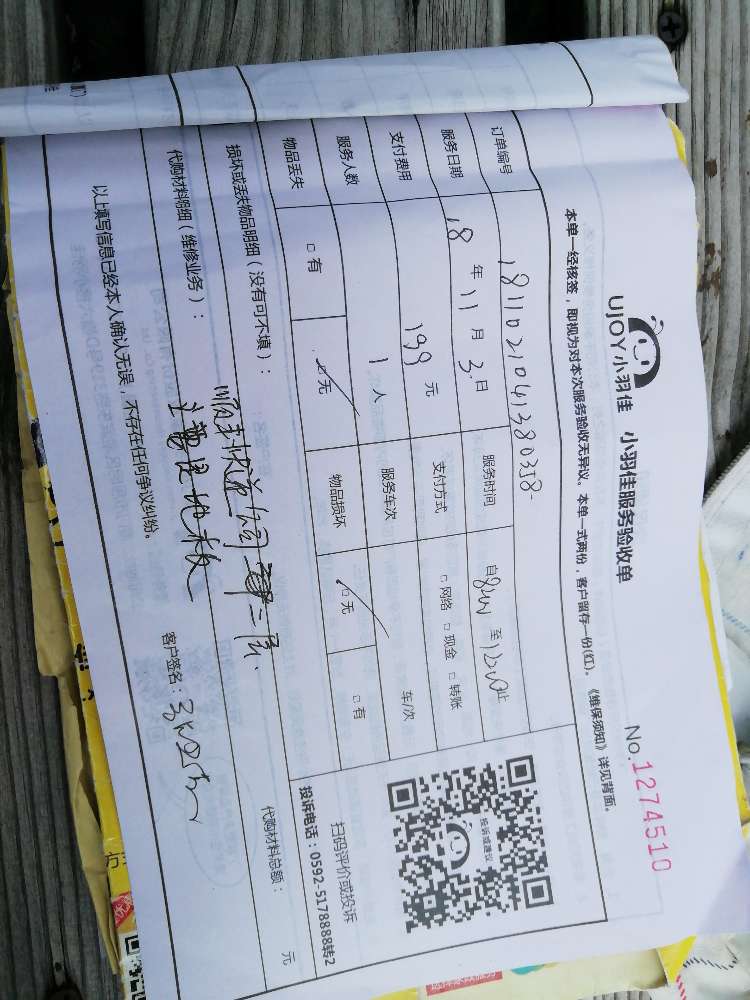 UJOY小羽佳 小羽佳服务验收单
No.1274510
本单一经核签，即视为对本次服务验收无异议。本单一式两份，客户留存一份(红)。《维保须知》详见背面。
订单编号 181102104138038
服务日期 18 年 11 月 3 日 服务时间 自8:00 至12:00止
支付费用 199 元 支付方式 □ 网络 □ 现金 □ 转账
服务人数 1 人 服务车次 车/次
物品丢失 □ 有 □ 无 物品损坏 □ 无 □ 有
投诉或建议
扫码评价或投诉
投诉电话：0592-5178888转2
损坏或丢失物品明细（没有可不填）：
顺丰快递 二层.
代购材料明细（维修业务）： 代购材料总额： 元
主要是地板
以上填写信息已经本人确认无误，不存在任何争议纠纷。 客户签名：